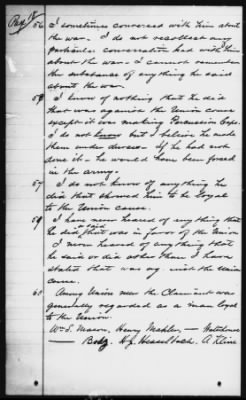 56 I sometimes conversed with him about
the war. I do not recollect any
particular conversation had with him
about the war. I cannot remember
the substance of anything he said
about the war.
I know of nothing that he did
that was against the Union Cause
except it was making Percussion Caps.
I do not know but I believe he made
them under duress. If he had not
done it he would have been forced
in the army.
57 I do not know of anything he
did that showed him to be loyal
to the Union cause.
59 I have never heared of anything that
he did or said that was in favor of the Union
I never heared of anything that
he said or did other than I have
stated that was ag. with the Union
cause.
60 Among Union men the Claimant was
generally regarded as a man loyal
to the Union.
Wm S. Mason, Henry Mahler,
A Klein